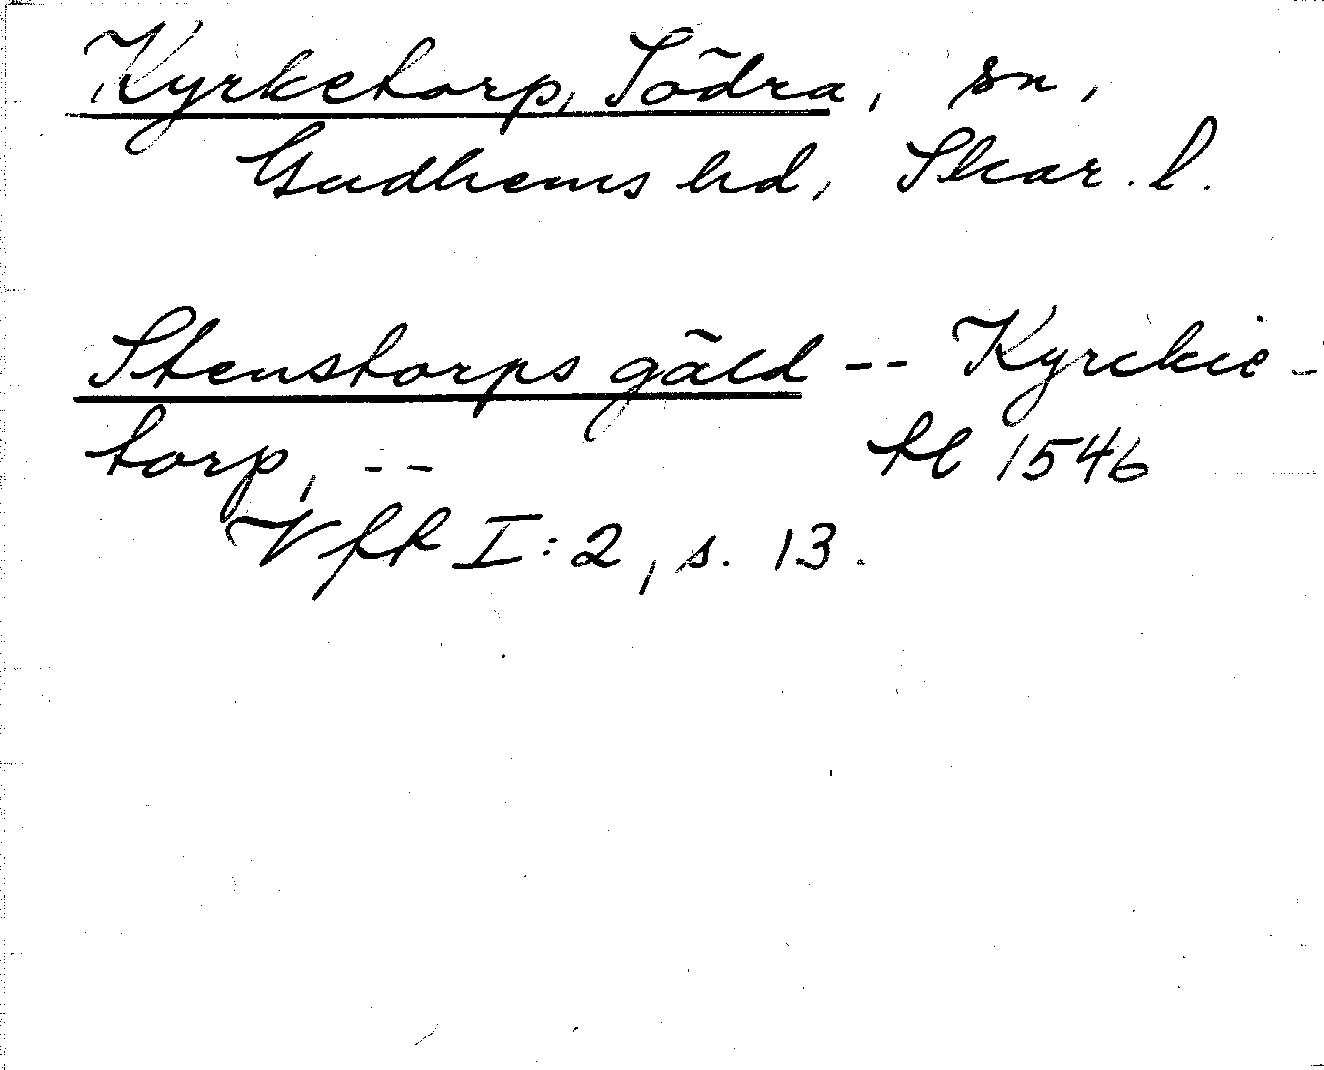 Kyrketorp, Södra, sn,
Gudhems hd, Skar. l.
Stenstorps gäld -- Kyrckie-
torp, -- tl 1546
Vffk I:2, s. 13.